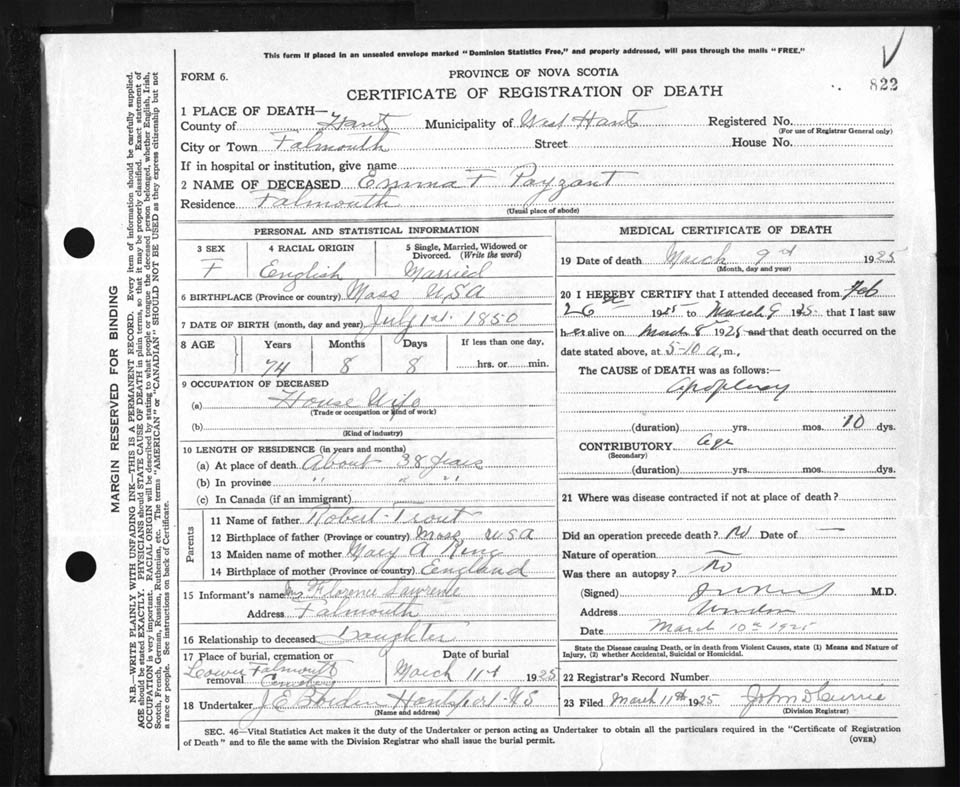 This form if placed in an unsealed envelope marked "Dominion Statistics Free," and properly addressed, will pass through the mails "FREE."
FORM 6.
PROVINCE OF NOVA SCOTIA
822
CERTIFICATE OF REGISTRATION OF DEATH
1 PLACE OF DEATH—
County of Hants Municipality of West Hants Registered No.
(For use of Registrar General only)
City or Town Falmouth Street House No.
If in hospital or institution, give name
2 NAME OF DECEASED Emma F Payzant
Residence Falmouth
(Usual place of abode)
PERSONAL AND STATISTICAL INFORMATION
3 SEX 4 RACIAL ORIGIN 5 Single, Married, Widowed or
Divorced. (Write the word)
F English Married
6 BIRTHPLACE (Province or country) Mass USA
7 DATE OF BIRTH (month, day and year) July 1st. 1850
8 AGE Years Months Days If less than one day,
74 8 8 hrs. or min.
9 OCCUPATION OF DECEASED
(a) House Wife
(Trade or occupation or kind of work)
(b)
(Kind of industry)
10 LENGTH OF RESIDENCE (in years and months)
(a) At place of death About 38 years
(b) In province " " "
(c) In Canada (if an immigrant)
Parents
11 Name of father Robert Trout
12 Birthplace of father (Province or country) Mass, USA
13 Maiden name of mother Mary A King
14 Birthplace of mother (Province or country) England
15 Informant's name Mrs Florence Lawrence
Address Falmouth
16 Relationship to deceased Daughter
17 Place of burial, cremation or Date of burial
removal Lower Falmouth Cemetery March 11th 1925
18 Undertaker J E Borden Hantsport NS
(Name and address)
MEDICAL CERTIFICATE OF DEATH
19 Date of death March 9th 1925
(Month, day and year)
20 I HEREBY CERTIFY that I attended deceased from Feb
26 1925 to March 9 1925 that I last saw
her alive on March 8 1925 and that death occurred on the
date stated above, at 5-10 a.m.,
The CAUSE of DEATH was as follows:—
Apoplexy
(duration) yrs. mos. 10 dys.
CONTRIBUTORY Age
(Secondary)
(duration) yrs. mos. dys.
21 Where was disease contracted if not at place of death?
Did an operation precede death? No Date of —
Nature of operation —
Was there an autopsy? No
(Signed) M.D.
Address Windsor
Date March 10th 1925
State the Disease causing Death, or in death from Violent Causes, state (1) Means and Nature of
Injury, (2) whether Accidental, Suicidal or Homicidal.
22 Registrar's Record Number
23 Filed March 11th 1925 John D Currie
(Division Registrar)
SEC. 46—Vital Statistics Act makes it the duty of the Undertaker or person acting as Undertaker to obtain all the particulars required in the "Certificate of Registration
of Death" and to file the same with the Division Registrar who shall issue the burial permit. (OVER)
MARGIN RESERVED FOR BINDING
N.B.—WRITE PLAINLY WITH UNFADING INK—THIS IS A PERMANENT RECORD. Every item of information should be carefully supplied.
AGE should be stated EXACTLY. PHYSICIANS should STATE CAUSE OF DEATH in plain terms, so that it may be properly classified. Exact statement of
OCCUPATION is very important. RACIAL ORIGIN will be described by stating to what people or tongue the deceased person belonged, whether English, Irish,
Scotch, French, German, Russian, Ruthenian, etc. The terms "AMERICAN" or "CANADIAN" SHOULD NOT BE USED as they express citizenship but not
a race or people. See instructions on back of Certificate.